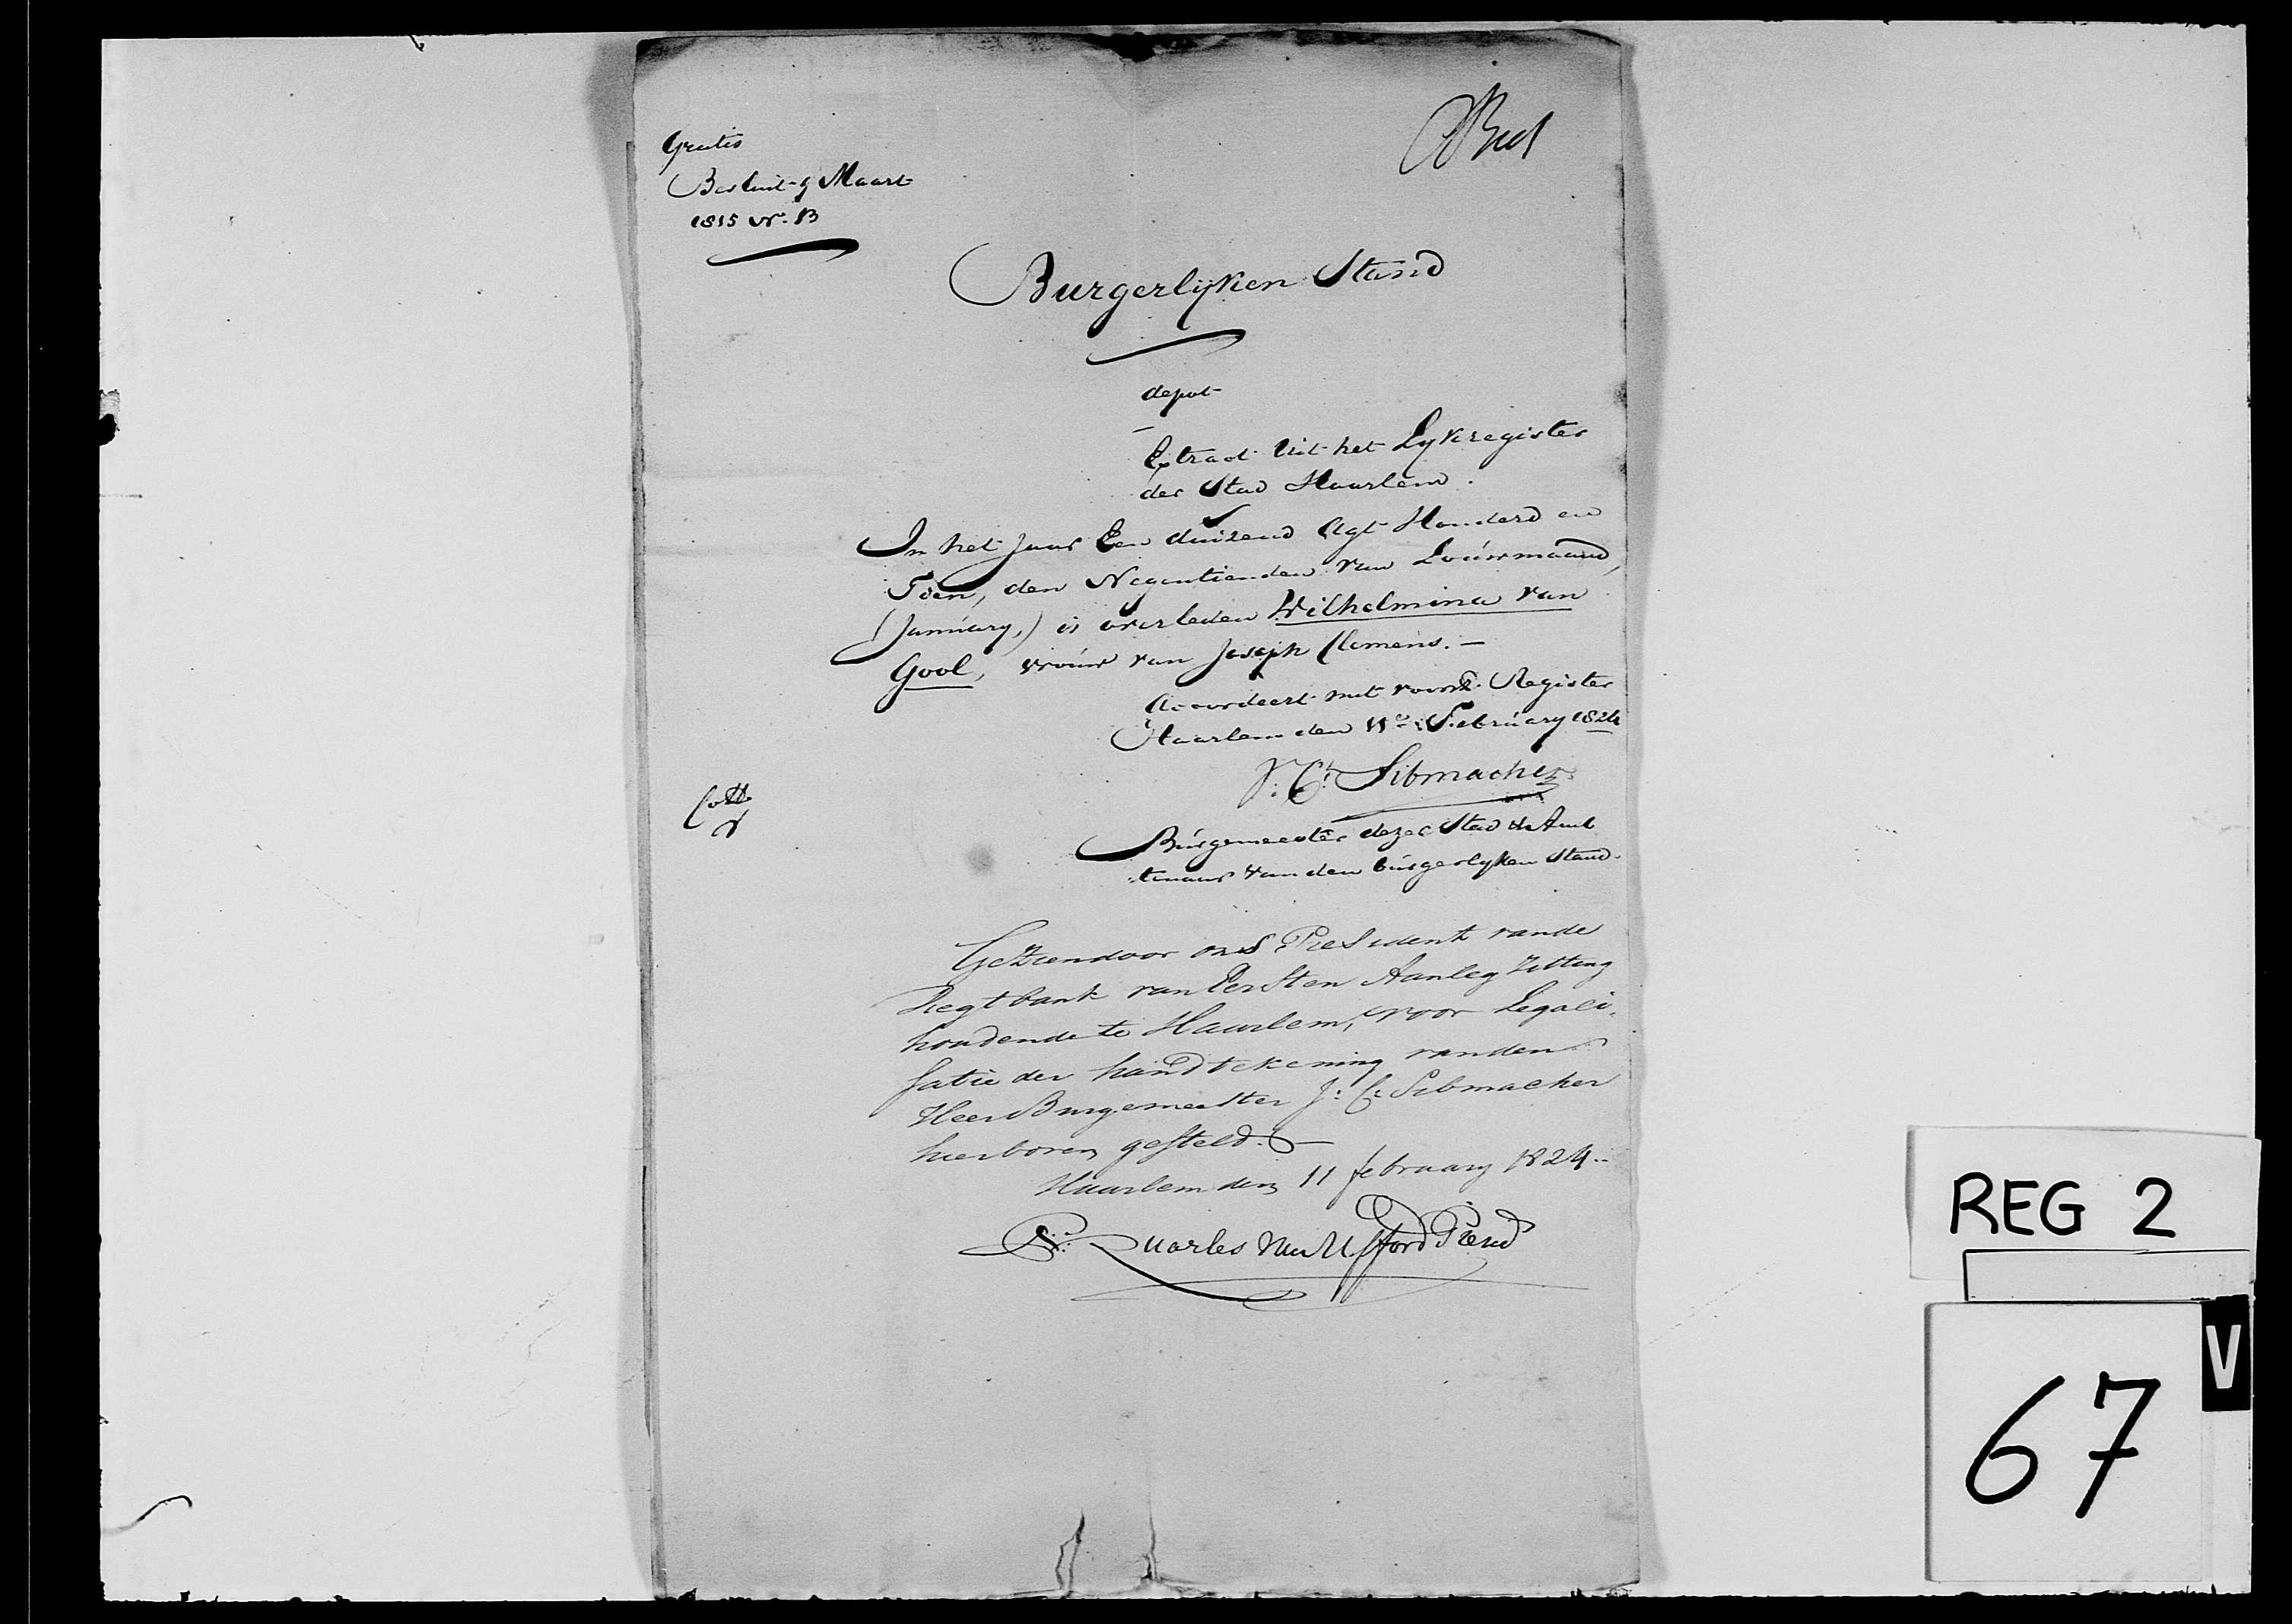 Gratis
Besluit 9 Maart
1815 No. 13
Burgerlyken Stand
depot
Extract uit het Lykregister
der Stad Haarlem.
In het Jaar Een duizend Agt Honderd en
Tien, den Negentienden van Louwmaand,
(January,) is overleden Wilhelmina van
Gool, vrouw van Joseph Clemens. —
Accordeert met voorsz. Register
Haarlem den 11e February 1824
J: C: Sibmacher
Burgemeester dezer Stad & Amb
tenaar van den burgerlyken Stand.
Gezien door ons President van de
Regtbank van Eersten Aanleg Zitting
houdende te Haarlem, voor Legali-
satie der handtekening van den
Heer Burgemeester J: C: Sibmacher
hierboven gesteld. —
Haarlem den 11 february 1824
Quarles van Ufford Presid
REG 2
67
V